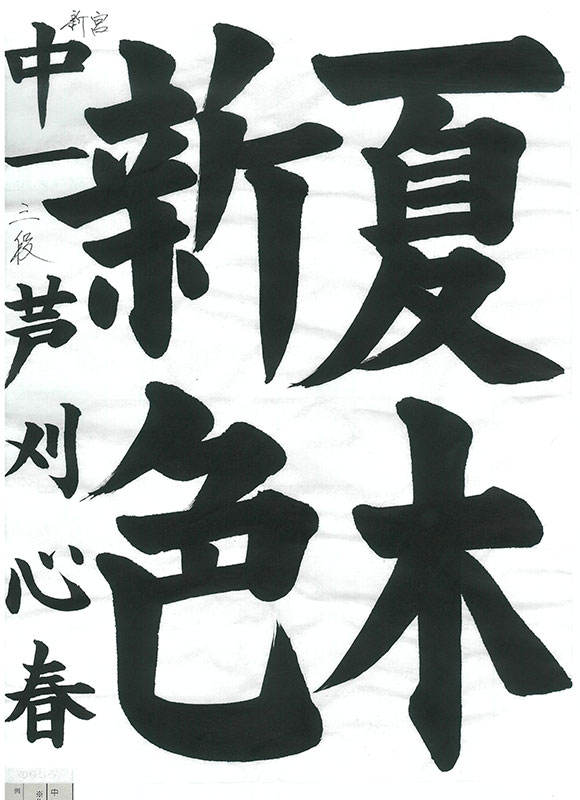 夏木
新色
新宮
中一 三段 芦刈心春
中
※
例